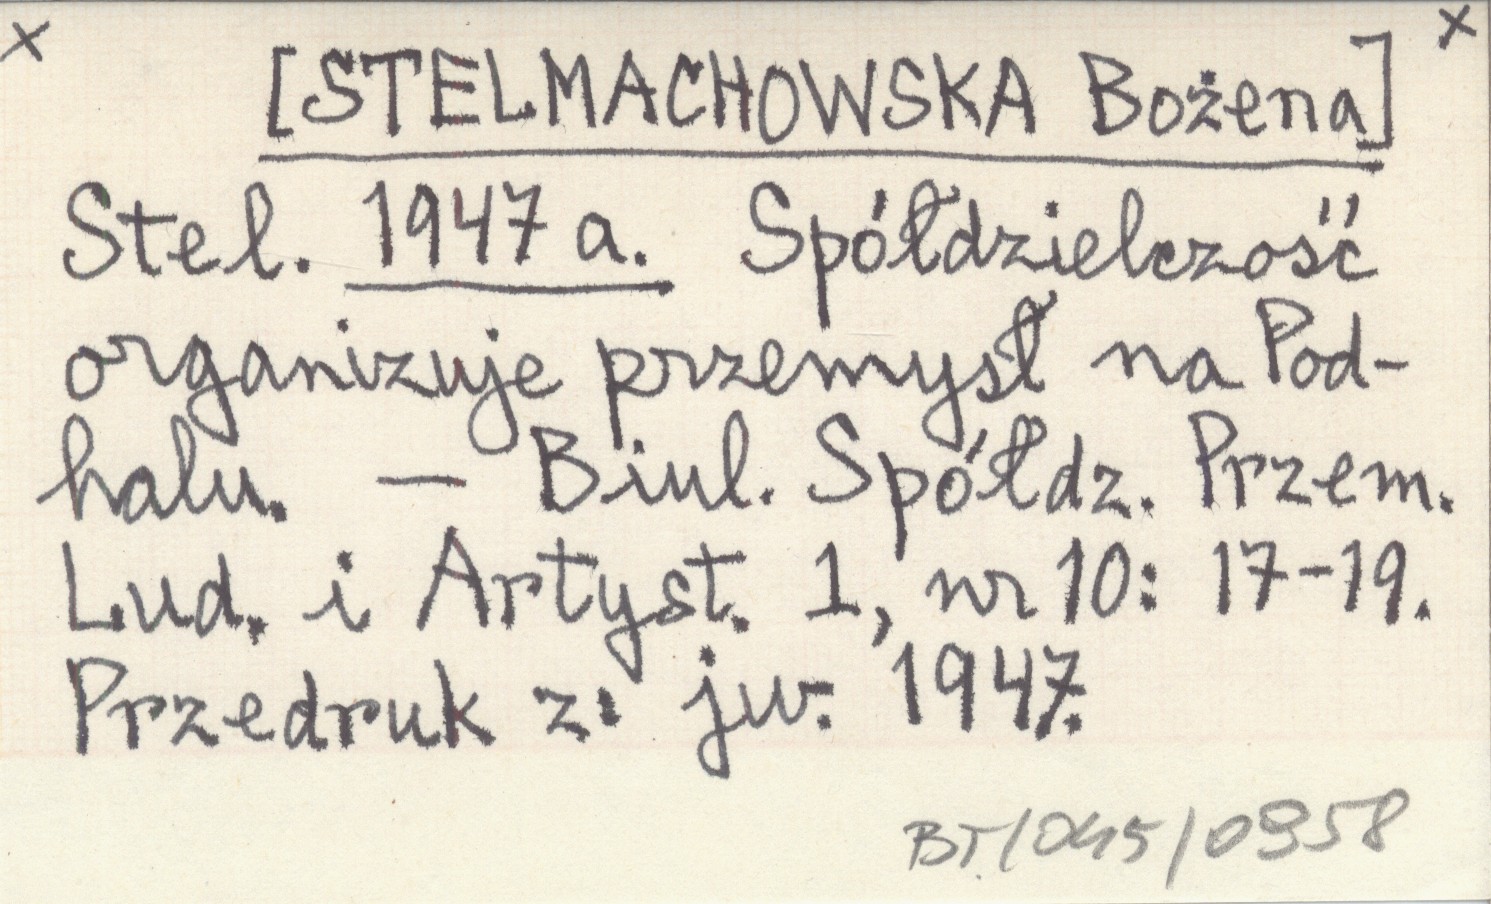 x [STELMACHOWSKA Bożena] x
Stel. 1947 a. Spółdzielczość
organizuje przemysł na Pod-
halu. — Biul. Spółdz. Przem.
Lud. i Artyst. 1, nr 10: 17-19.
Przedruk z: jw. 1947.
BT/045/0958